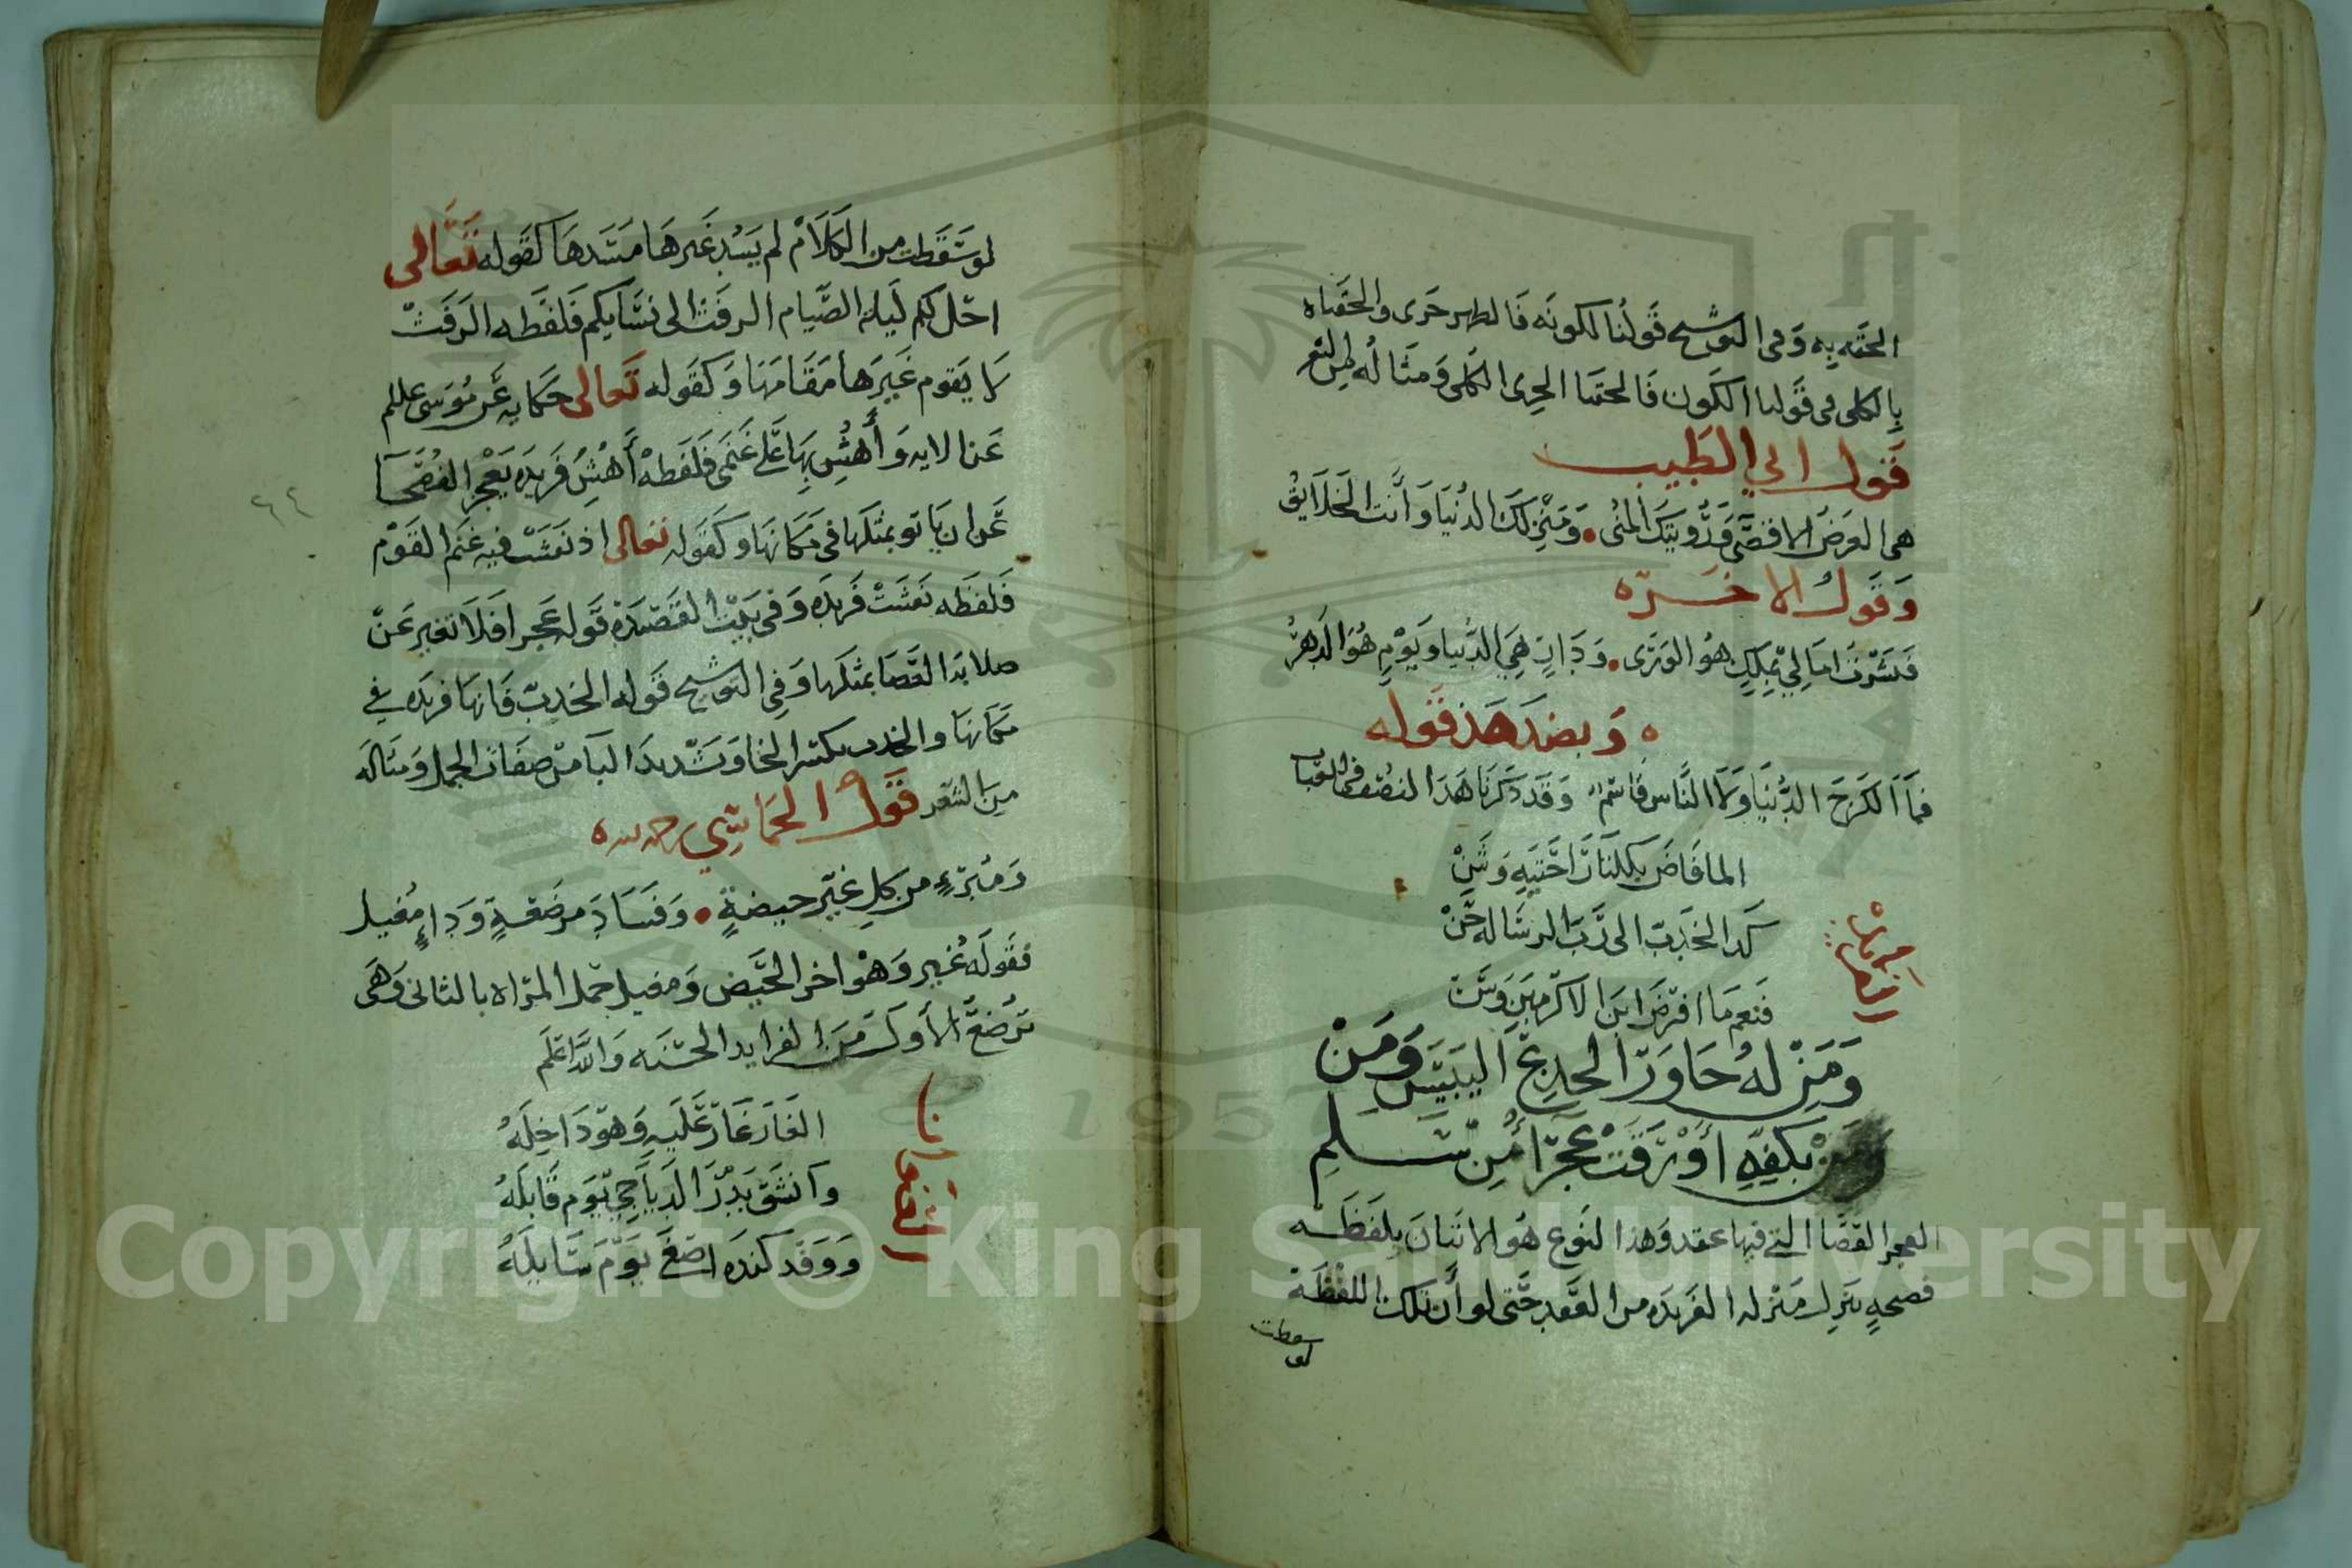 الحقه به وفى التوشيح قولنا لكونه فالطهر حرى والحقناه
بالكلى فى قولنا الكون فالحقنا الجزى الكلى ومثاله من الشعر
قول ابي الطيب
هى الغرض الاقصى ورؤيتك المنى • ومنزلك الدنيا وأنت الخلايق
وقول الاخره
فبشرت امالي بملك هو الورى • ودار هي الدنيا ويوم هو الدهر
وبضد هذ قوله
فما الكرخ الدنيا ولا الناس قاسم وقد ذكرنا هذا النصف فى القاب
الما فاض بكلتا راحتيه وشن
كدا الخدب الى رب الرساله حن
فنعم ما افترض ابن الاكرمين وسن
ومن له حاور الجدع اليبيس ومن
بكفه أورقت عجرا من سلم
العجر القصا التي فيها عقد وهذا النوع هو الاتيان بلفظه
فصحه تنزل منزله الفريده من العقد حتى لو أن تلك اللفظة
لو سقطت
لو سقطت من الكلام لم يسد غيرها مسدها كقوله تعالى
احل لكم ليلة الصيام الرفث الى نسايكم فلفظه الرفث
لا يقوم غيرها مقامها وكقوله تعالى حكايه عن موسى علىلم
عنا الايه وأهش بها على غنمى فلفظه أهش فريده يعجز الفصحا
عن ان ياتو بمثلها فى مكانها وكقوله تعالى اذ نفشت فيه غنم القوم
فلفظه نفشت فريده وفى بيت القصيدة قوله عجرا فلا تغير عن
صلابه القصا بمثلها وفي التوشيح قوله الخدب فانها فريده في
مكانها والخدب بكسر الخا وتشديد البا من صفات الجمل ومثاله
من الشعر فقول الحماسي
ومبرءٍ من كل غبر حيضةٍ • وفساد مرضعةٍ وداءٍ مغيل
فقوله غبر وهو اخر الحيض ومغيل حمل المراه بالثانى وهى
ترضع الأول من الفرايد الحسنه والله اعلم
الغار غار عليه وهو داخله
وانشق بدر الدياجي يوم قابله
ووفد كنده اصغى يوم سايله
٦٤